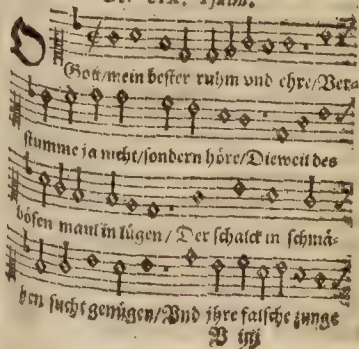 Der CIX. Psalm.
O
Gott/mein bester ruhm vnd ehre/Ver-
stumme ja nicht/sondern höre/Dieweil des
bösen maul in lügen/Der schalck in schmä-
hen sucht genügen/Vnd jhre falsche zunge
B iiij